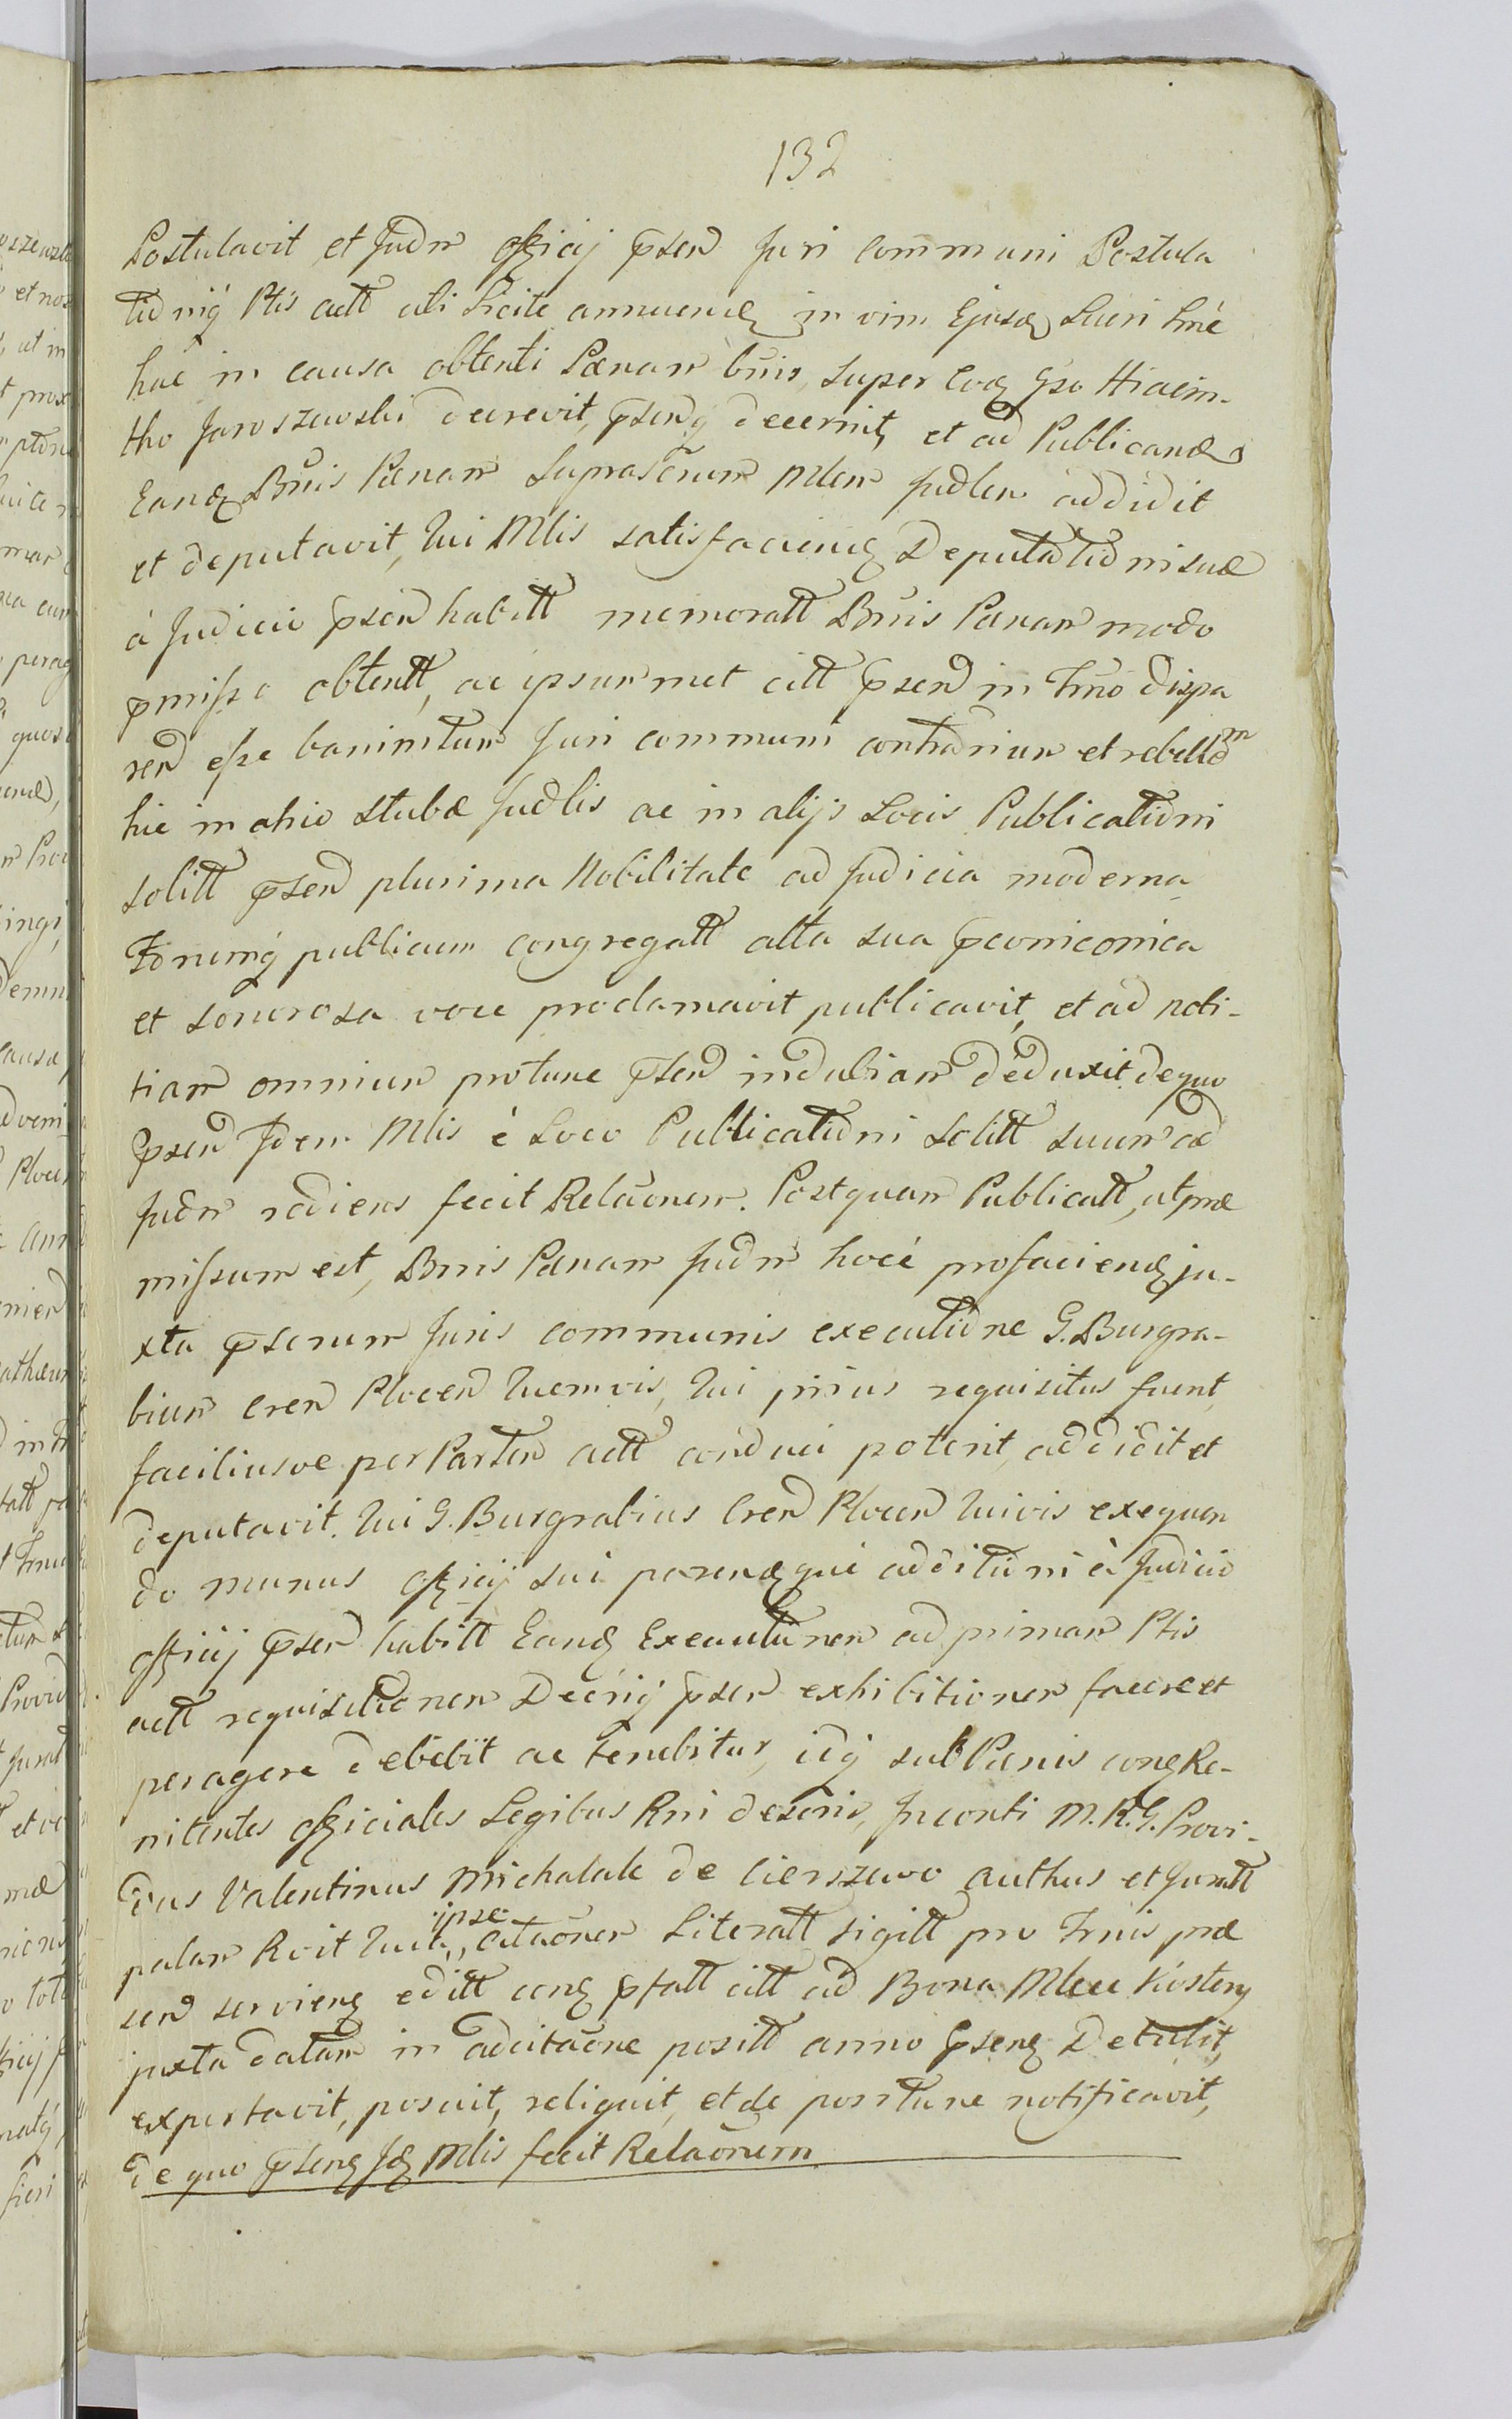 132
Postulavit et Judm officij pnsen Juri communi Postula
tioniq Ptis actt uti licite annuend in vim Ejusd Lucri hne
hac in causa obtenti Pænam bnis, super Eod Gso Hiacin-
tho Jaroszewski decrevit, pnsenq decernit, et ad Publicand
Eand Bnis Pænam suprascrum Mlem Judlem addidit
et deputavit, Qui Mlis satisfaciend Deputationi suæ
á Judicio pnsen habitt memoratt Bnis Pænam modo
præmisso obtentt, ac ipsummet citt pnsen in Tmo dispa
ren esse bannitum Juri communi contrarium et rebellem
hic in atrio stubæ Judlis ac in alijs Locis Publicationi
solitt pnsen plurima Nobilitate ad Judicia moderna
Forumq publicum congregatt alta sua præconiconica
et sonorosa voce proclamavit publicavit, et ad noti-
tiam omnium protunc pnsen indubiam deduxit. de quo
pnsen Idem Mlis é Loco Publicationi solitt suum ad
Judm rediens fecit Relaonem. Postquam Publicatt, ut præ
missum est, Bnis Pænam Judm hocce pro faciend ju-
xta pnscrum Juris communis executione G. Burgra-
bium Cren Plocen Quemvis, Qui prius requisitus fuerit,
faciliusve per Partem actt conduci poterit, addidit et
deputavit. Qui G. Burgrabius Cren Plocen Quivis exequen
do munus officij sui parendque additioni á Judicio
officij pnsen habitt Eand Executionem ad primam Ptis
actt requisitionem Decriq pnsen exhibitionem facere et
peragere debebit ac tenebitur, idq sub Pænis con Re-
nitentes officiales Legibus Rni descris, In conti M. R. G. Provi-
dus Valentinus Michalak de Cierszewo authus et Juratt
palam Rcit Quia ipse citaonem Literatt sigitt pro Tmis præ
sen serviend editt con pfatt citt ad Bona Mlcu Kosteny
juxta datam in adcitaone positt anno pnsen Detulit,
exportavit, posuit, reliquit, et de positione notificavit,
de quo pnsen Id Mlis fecit Relaonem